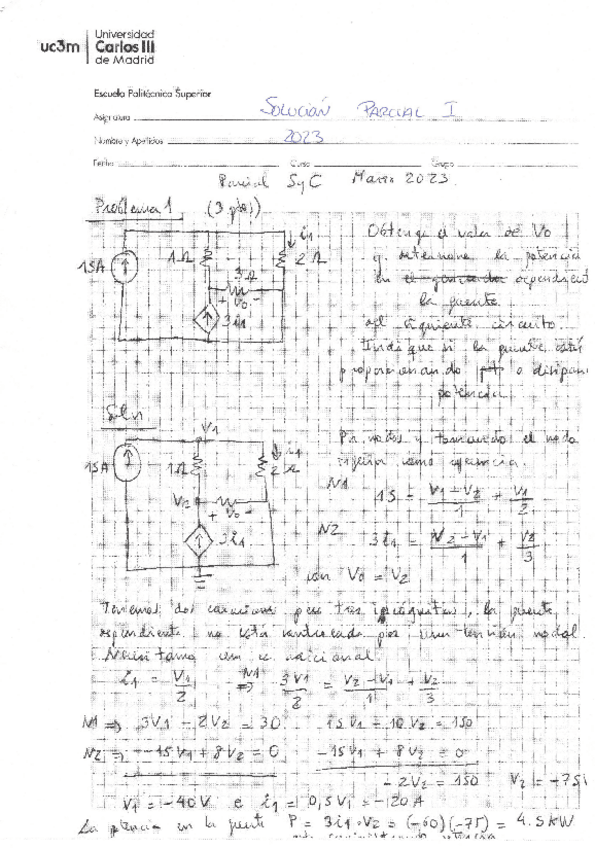 uc3m Universidad
Carlos III
de Madrid
Escuela Politécnica Superior
Asignatura SOLUCIÓN PARCIAL I
Nombre y Apellidos 2023
Fecha Curso Grupo
Parcial SyC Marzo 2023
Problema 1 (3 ptos)
Obtenga el valor de Vo
y determine la potencia
en dependiente
la fuente
del siguiente circuito.
Indique si la fuente está
proporcionando o disipan
potencia
15A 1Ω i1 2Ω
3Ω
+ Vo -
3i1
Soln
V1
15A 1Ω i1 2Ω
V2
+ Vo -
3i1
Por nodos y tomando el nodo
inferior como referencia.
N1 15 = (V1 - V2)/1 + V1/2
N2 3i1 = (V2 - V1)/1 + V2/3
con Vo = V2
Tenemos dos ecuaciones para tres incógnitas, la fuente
dependiente no está controlada por una tensión nodal.
i1 = V1/2 N1 ⇒ 3V1/2 = (V2 - V1)/1 + V2/3
N1 ⇒ 3V1 - 2V2 = 30 15V1 - 10V2 = 150
N2 ⇒ -15V1 + 8V2 = 0 -15V1 + 8V2 = 0
-2V2 = 150 V2 = -75V
V1 = -40V e i1 = 0,5V1 = -120A
La potencia en la fuente P = 3i1·V2 = (-60)(-75) = 4.5kW